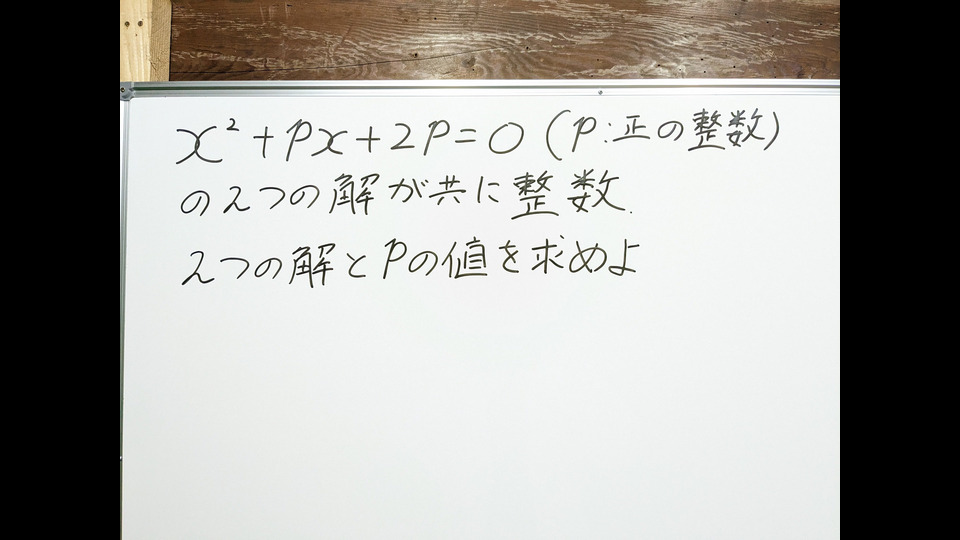 x²+px+2p=0 (p:正の整数)
の2つの解が共に整数.
2つの解とpの値を求めよ